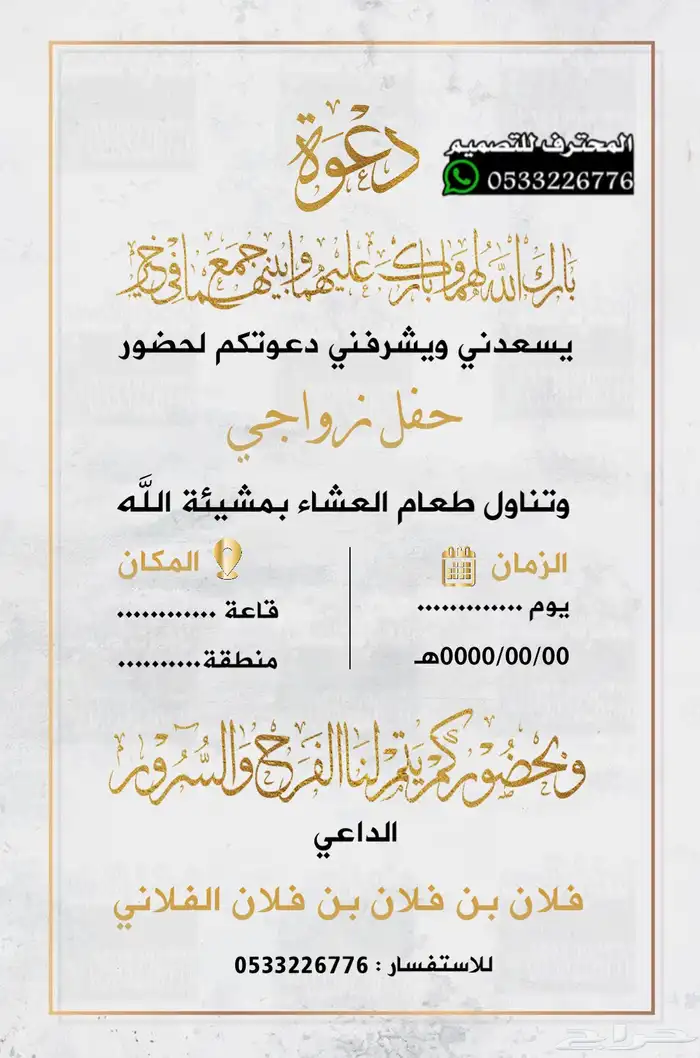 دعوة
المحترف للتصميم
0533226776
بارك الله لهما وبارك عليهما وجمع بينهما في خير
يسعدني ويشرفني دعوتكم لحضور
حفل زواجي
وتناول طعام العشاء بمشيئة اللَّه
الزمان
المكان
يوم .............
قاعة ............
0000/00/00هـ
منطقة..........
وبحضوركم يتم لنا الفرح والسرور
الداعي
فلان بن فلان بن فلان الفلاني
للاستفسار : 0533226776
حراج